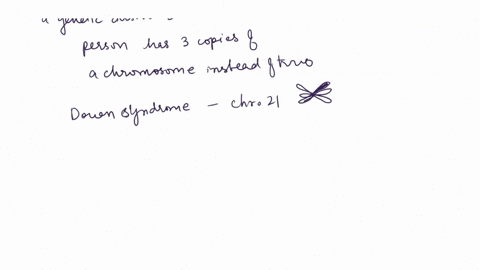 a genetic
person has 3 copies of
a chromosome instead of two
Down syndrome – chr. 21